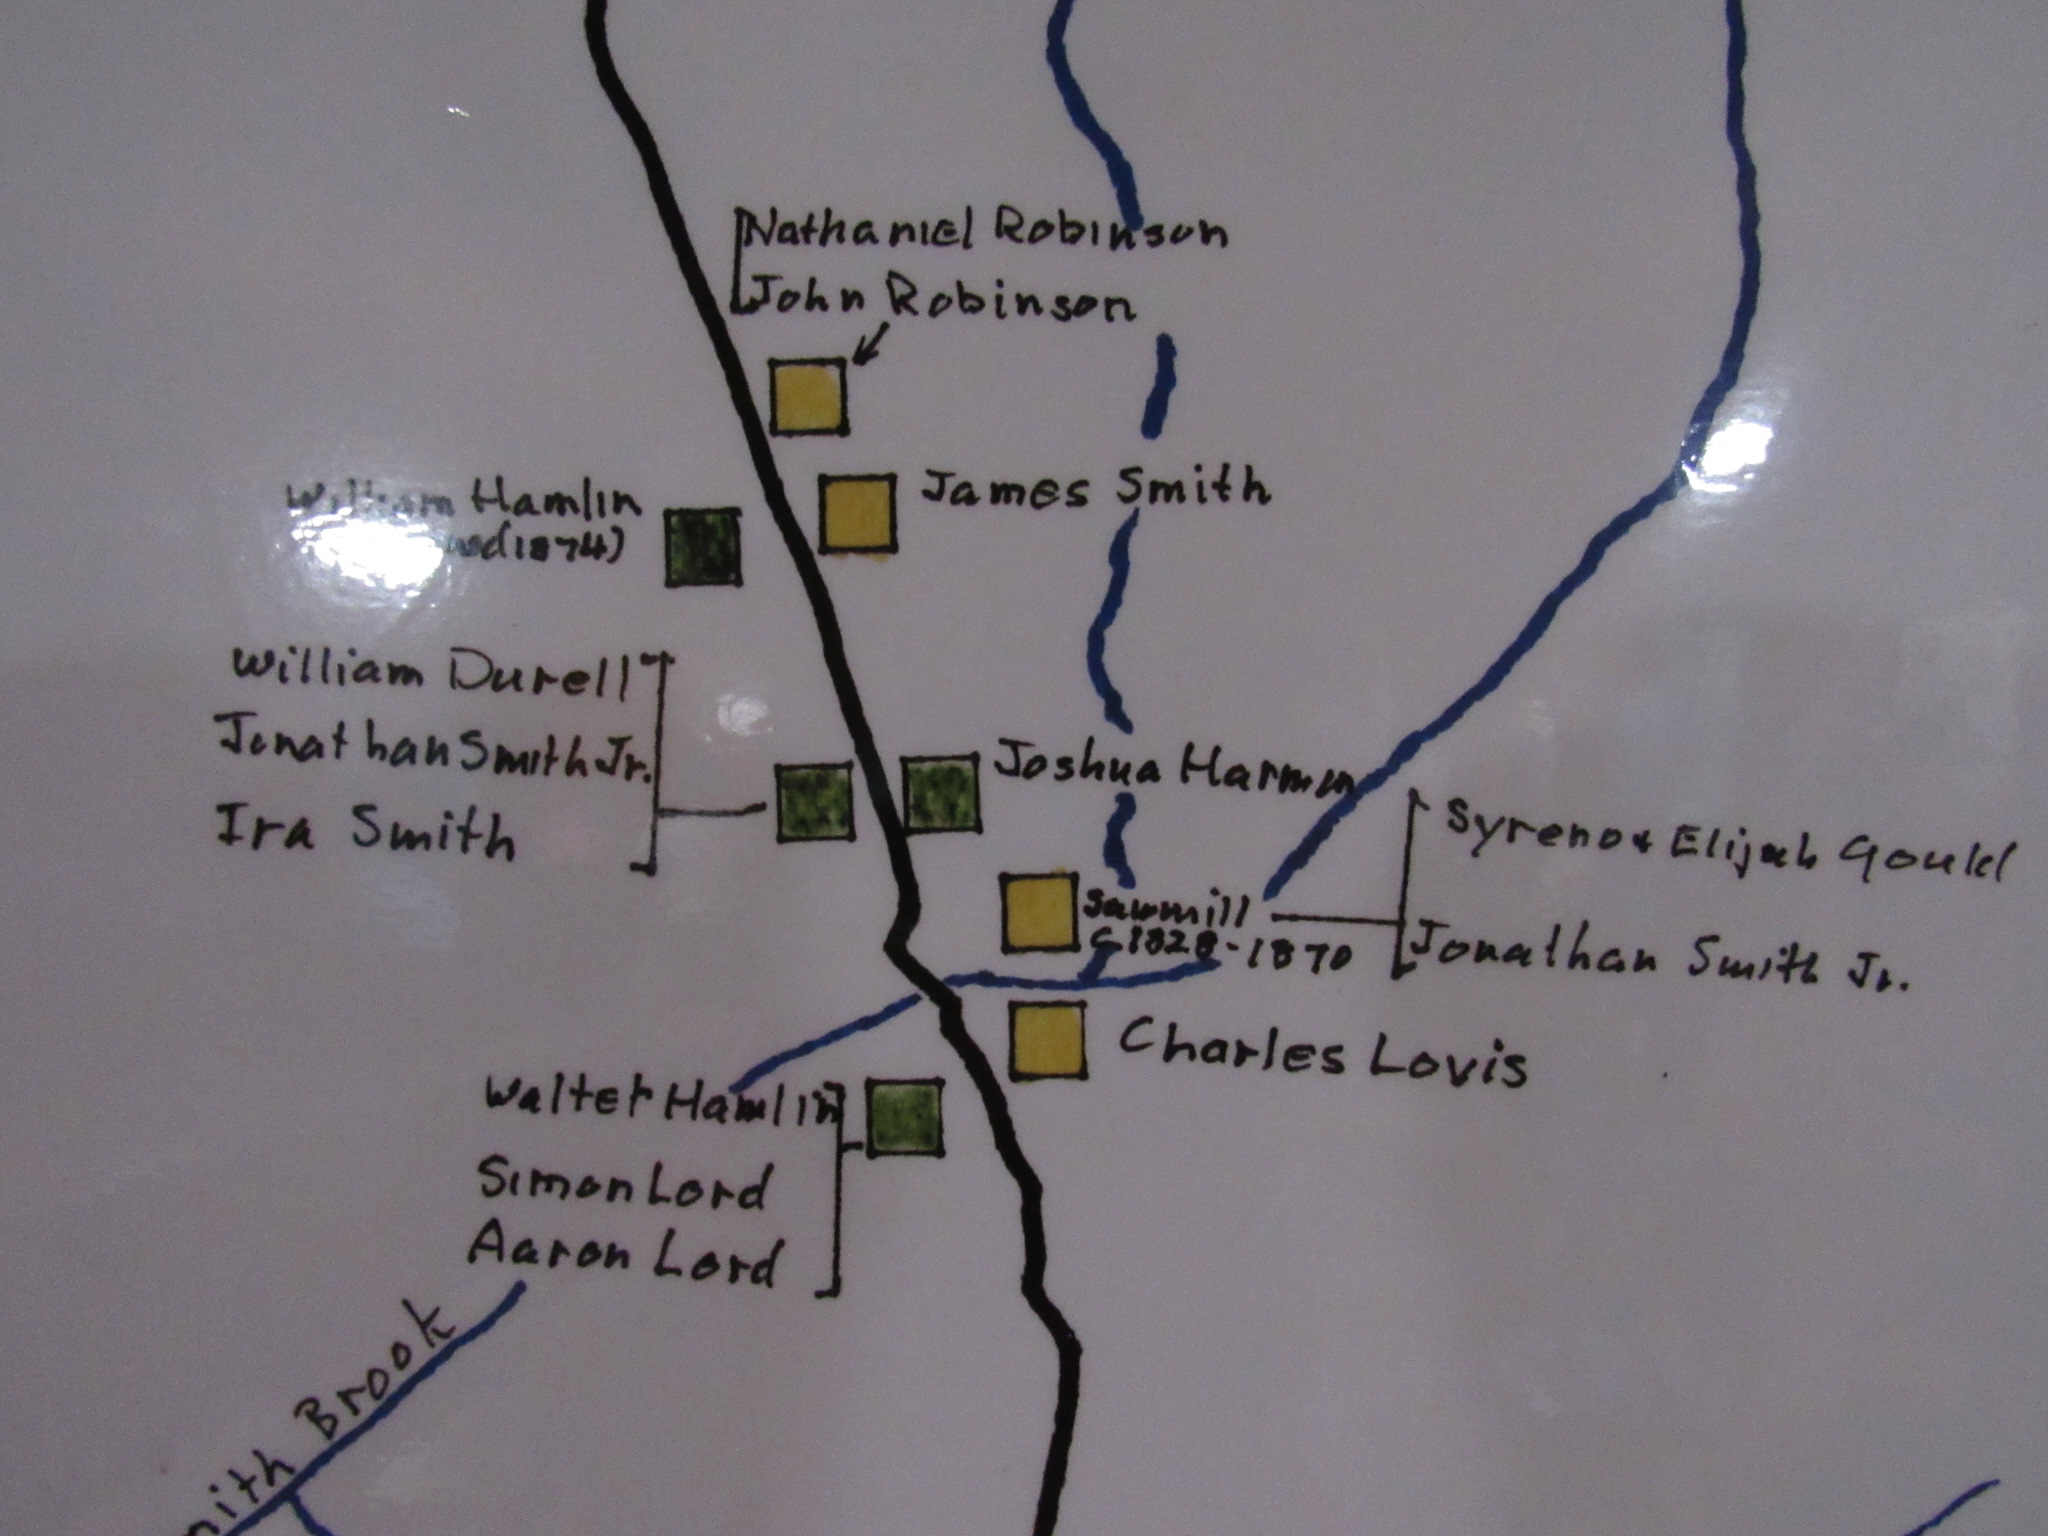 Nathaniel Robinson
John Robinson
James Smith
William Hamlin
(1874)
William Durell
Jonathan Smith Jr.
Ira Smith
Joshua Harmon
Syreno & Elijah Gould
Sawmill
c 1828-1870
Jonathan Smith Jr.
Charles Lovis
Walter Hamlin
Simon Lord
Aaron Lord
Brook